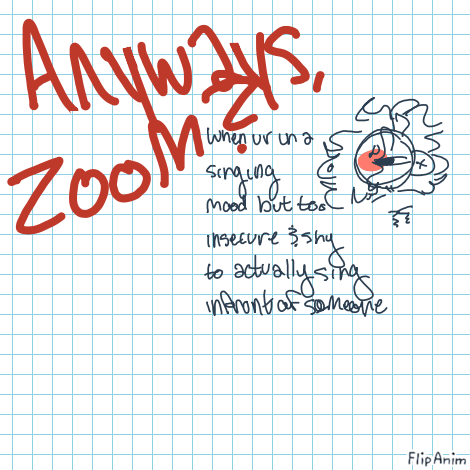 Anyways,
zoom?
when ur in a
singing
mood but too
insecure & shy
to actually sing
infront of someone
FlipAnim